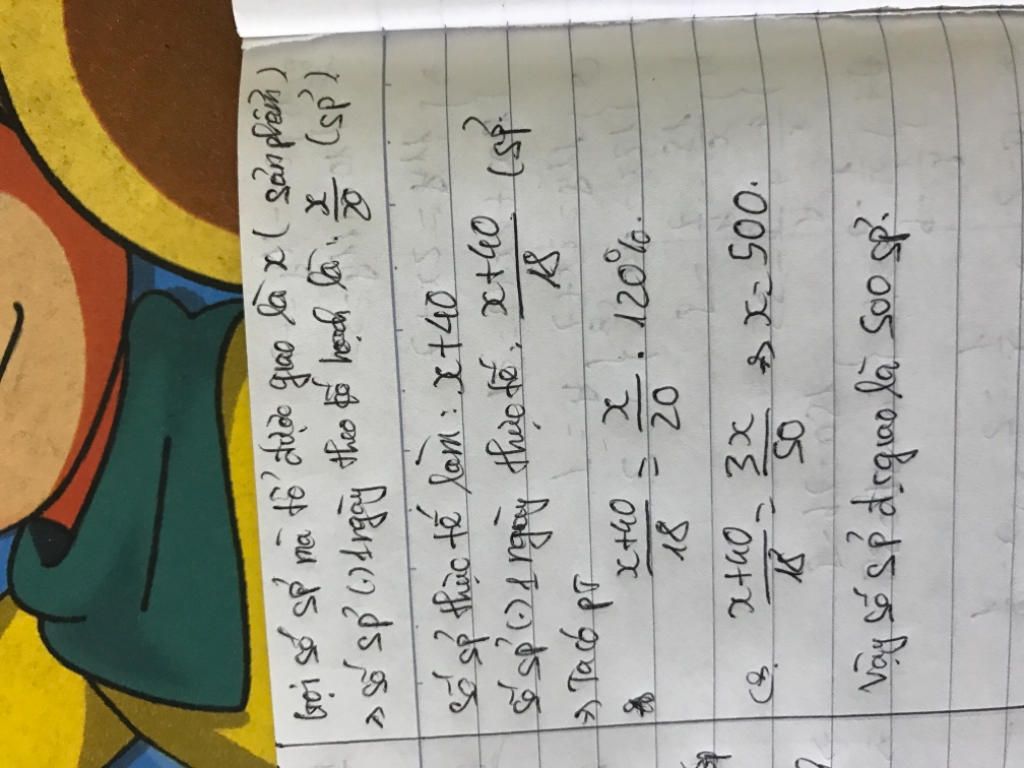 Gọi số sp' mà tổ được giao là x ( sản phẩm )
=> số sp' (.) 1 ngày theo kế hoạch là : x/20 (sp')
số sp' thực tế làm : x+40
số sp' (.) 1 ngày thực tế : x+40/18 (sp'.
=> Ta có PT
x+40/18 = x/20 . 120%.
(=). x+40/18 = 3x/50 => x = 500.
Vậy số sp' đ.giao là 500 sp'.